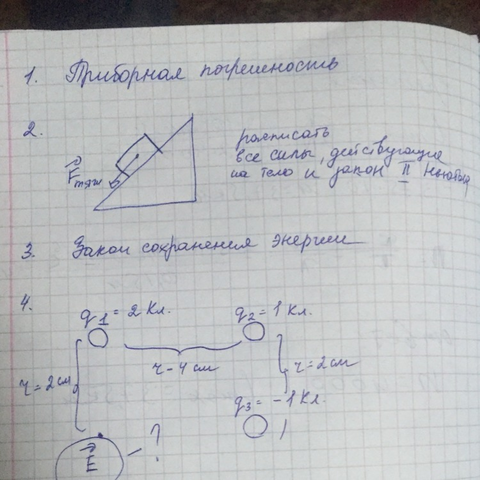 1. Приборная погрешность
2.
расписать
все силы, действующие
на тело и закон II Ньютона
F тяж
3. Закон сохранения энергии
4.
q1 = 2 Кл. q2 = 1 Кл.
r - 4 см
r = 2 см r = 2 см
q3 = -1 Кл.
E - ?